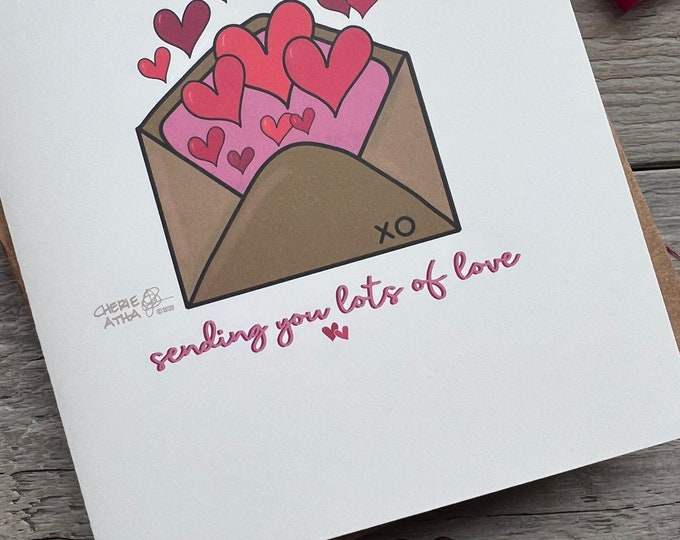 XO
CHERIE
ATHA ©2020
sending you lots of love